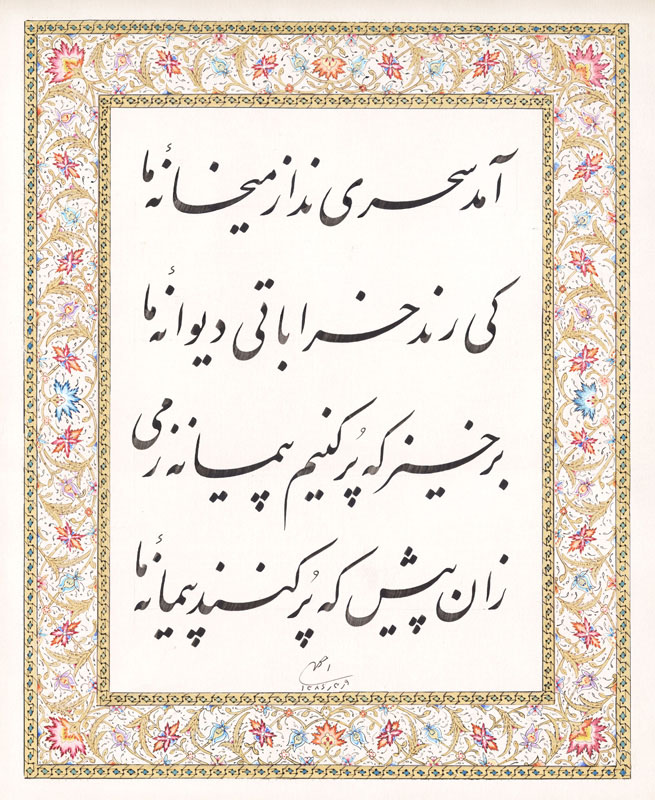 آمد سحری ندا ز میخانهٔ ما
کی رند خراباتی دیوانهٔ ما
برخیز که پُر کنیم پیمانه ز می
زان پیش که پُر کنند پیمانهٔ ما